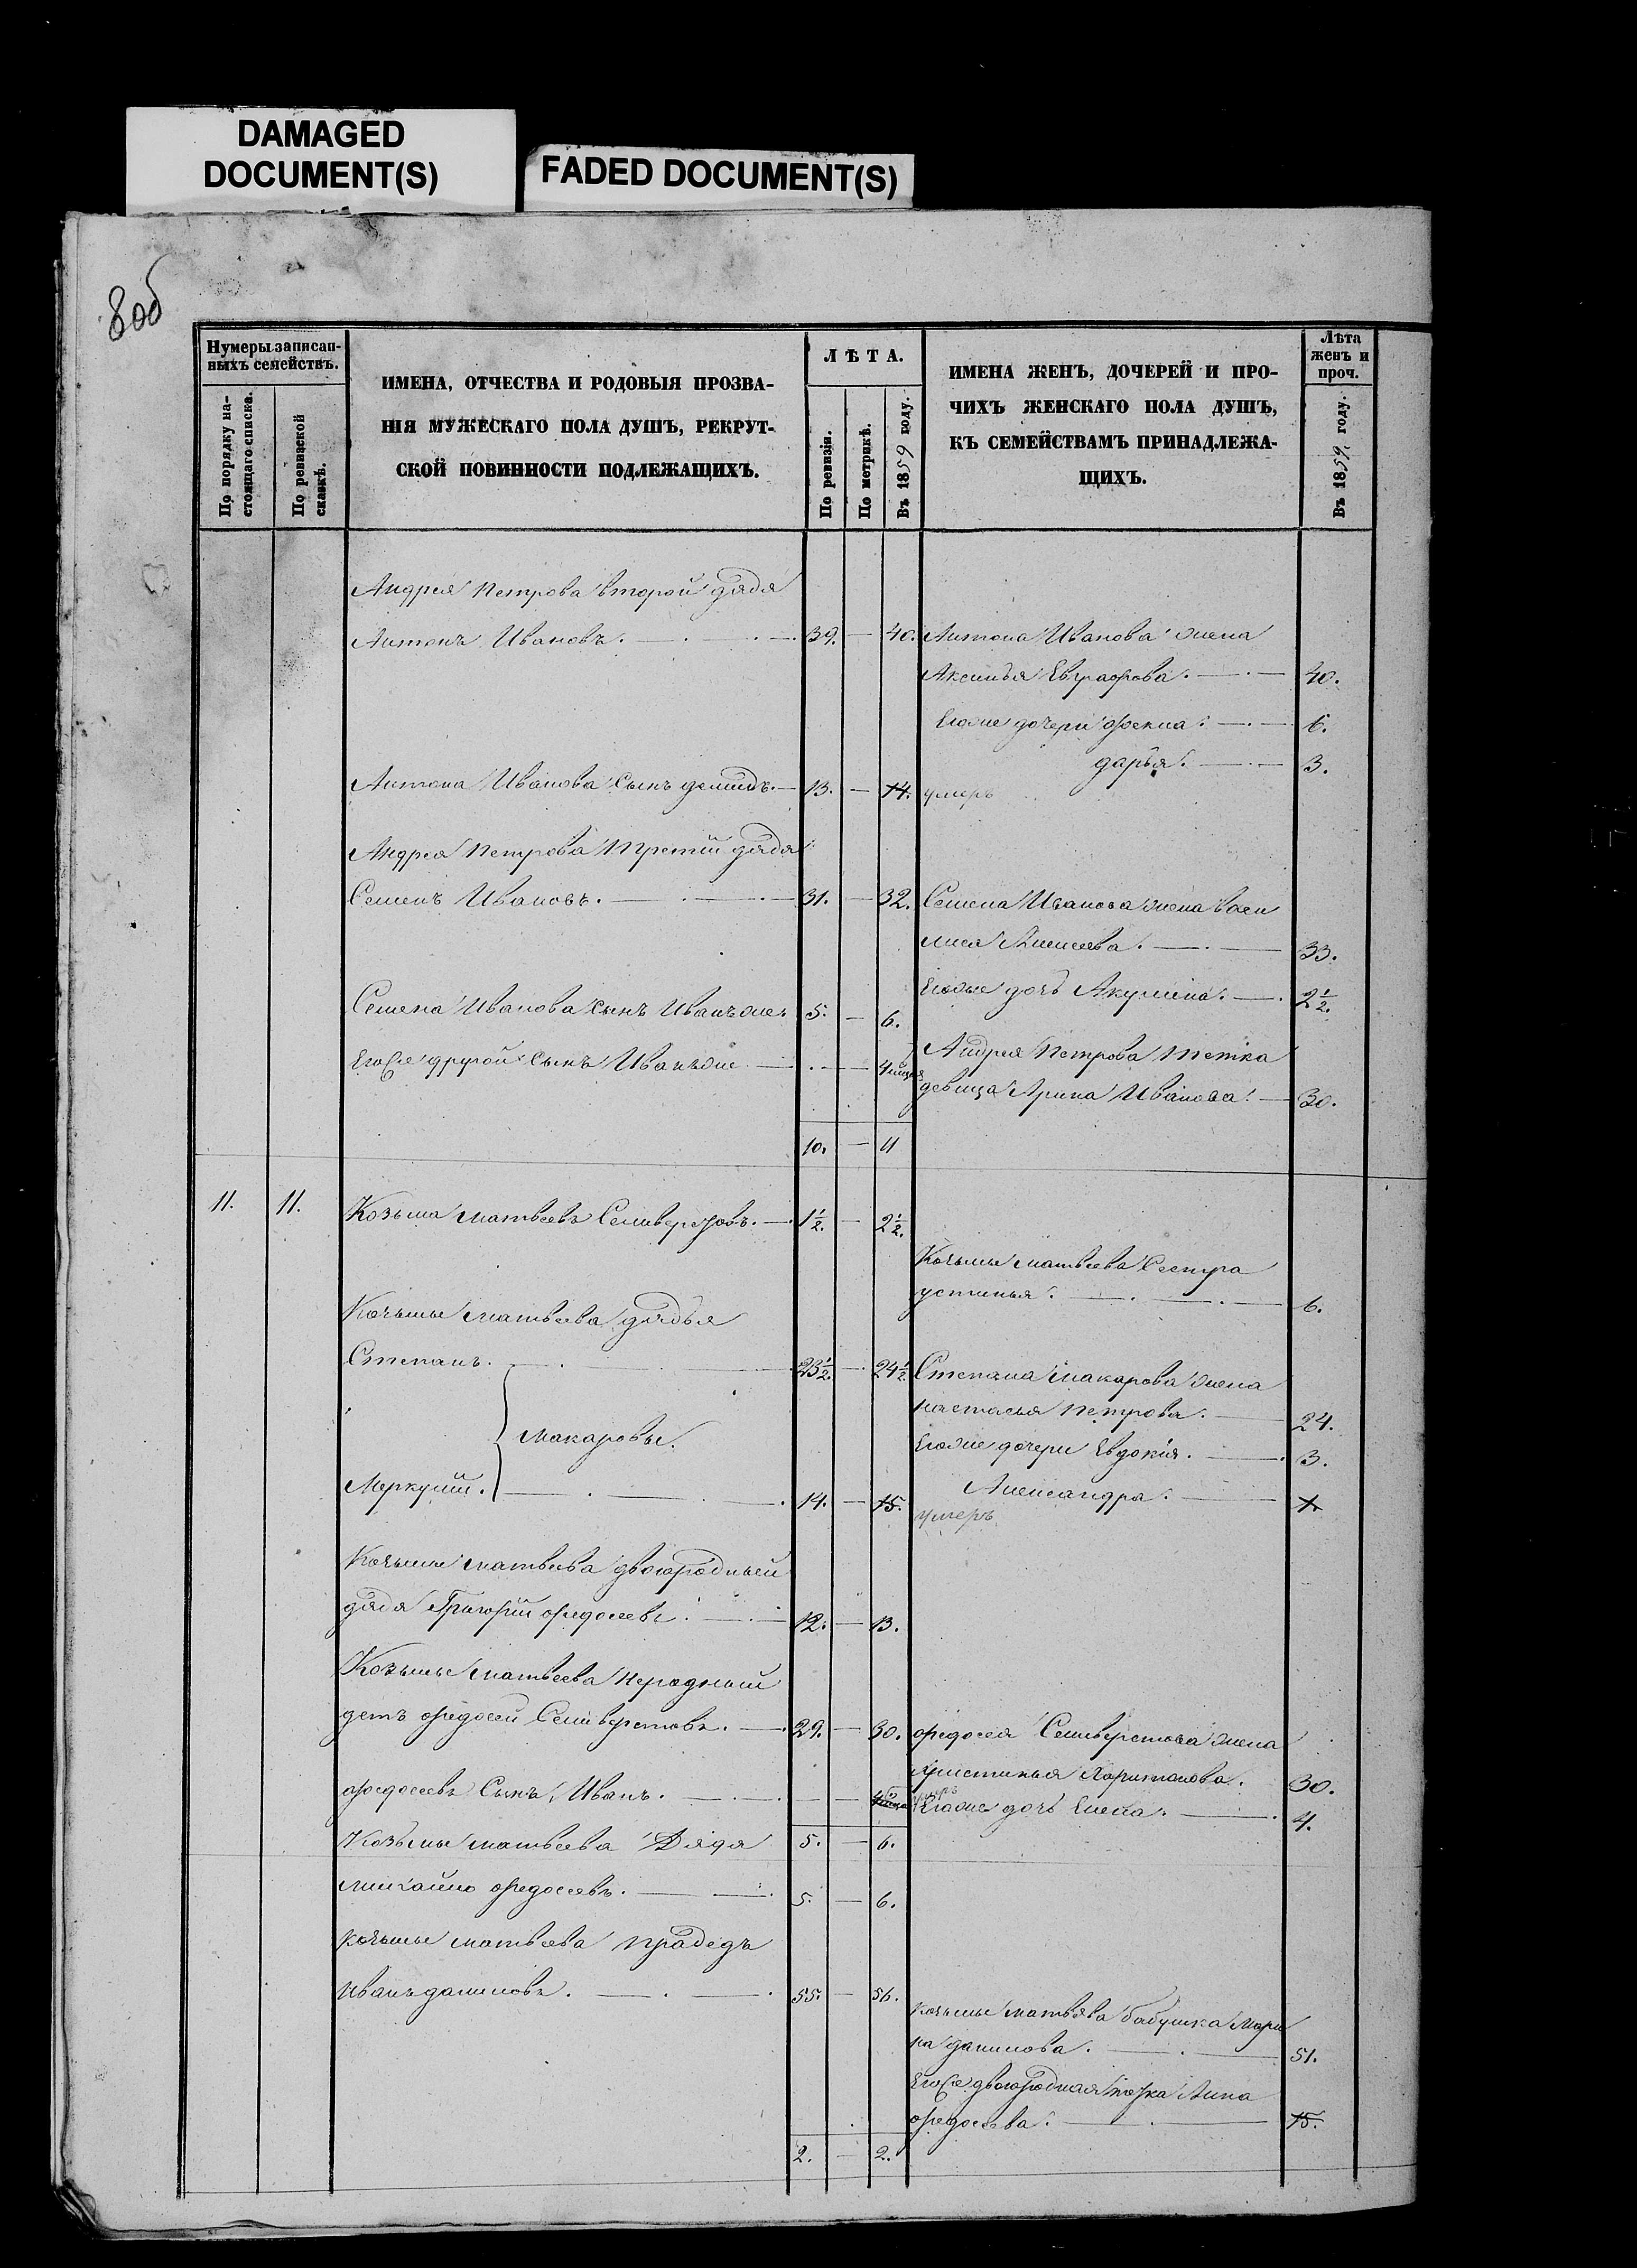 DAMAGED
DOCUMENT(S)
FADED DOCUMENT(S)
8об
Нумеры записан-
ныхъ семействъ.
По порядку на-
стоящаго списка.
По ревизской
сказкѣ.
ИМЕНА, ОТЧЕСТВА И РОДОВЫЯ ПРОЗВА-
НІЯ МУЖЕСКАГО ПОЛА ДУШЪ, РЕКРУТ-
СКОЙ ПОВИННОСТИ ПОДЛЕЖАЩИХЪ.
ЛѢТА.
По ревизіи.
По метрикѣ.
Въ 1859 году.
ИМЕНА ЖЕНЪ, ДОЧЕРЕЙ И ПРО-
ЧИХЪ ЖЕНСКАГО ПОЛА ДУШЪ,
КЪ СЕМЕЙСТВАМЪ ПРИНАДЛЕЖА-
ЩИХЪ.
Лѣта
женъ и
проч.
Въ 1859 году.
Андрея Петрова второй дядя
Антонъ Ивановъ. 39. — 40. Антона Иванова жена
Аксинья Евграфова. 40.
Егоже дочери Фекла. 6.
Дарья. 3.
Антона Иванова сынъ Демидъ. 13. — 14. умеръ
Андрея Петрова третій дядя
Семенъ Ивановъ. 31. — 32. Семена Иванова жена Васи
лиса Алисеева. 33.
Егоже дочь Акулина. 2½.
Семена Иванова сынъ Иванъ 5. — 6.
Андрея Петрова тетка
Его же другой сынъ Иванъ — 4
девица Арина Иванова. 30.
10. — 11
11. 11. Козьма Матвеевъ Селиверстовъ. 1½. — 2½.
Козьмы Матвеева сестра
Устинья. 6.
Козьмы Матвеева дядья
Степанъ. 23½. — 24½. Степана Макарова жена
Настасья Петрова. 24.
Макаровы.
Егоже дочери Евдокия. 3.
Александра. 1.
Меркурій. 14. — 15. умеръ
Козьмы Матвеева двоюродный
дядя Григорій Федосеевъ. 12. — 13.
Козьмы Матвеева неродный
детъ Федосей Селиверстовъ. 29. — 30. Федосея Селиверстова жена
Христинья Харитонова. 30.
Федосеевъ сынъ Иванъ. — Егоже дочь Елена. 4.
Козьмы Матвеева Дядя 5. — 6.
Михайло Федосеевъ. 5. — 6.
Козьмы Матвеева прадедъ
Иванъ Даниловъ. 55. — 56.
Козьмы Матвева бабушка Мари
на Данилова. 51.
Его же двоюродная тетка Анна
Федосеева. 15.
2. — 2.